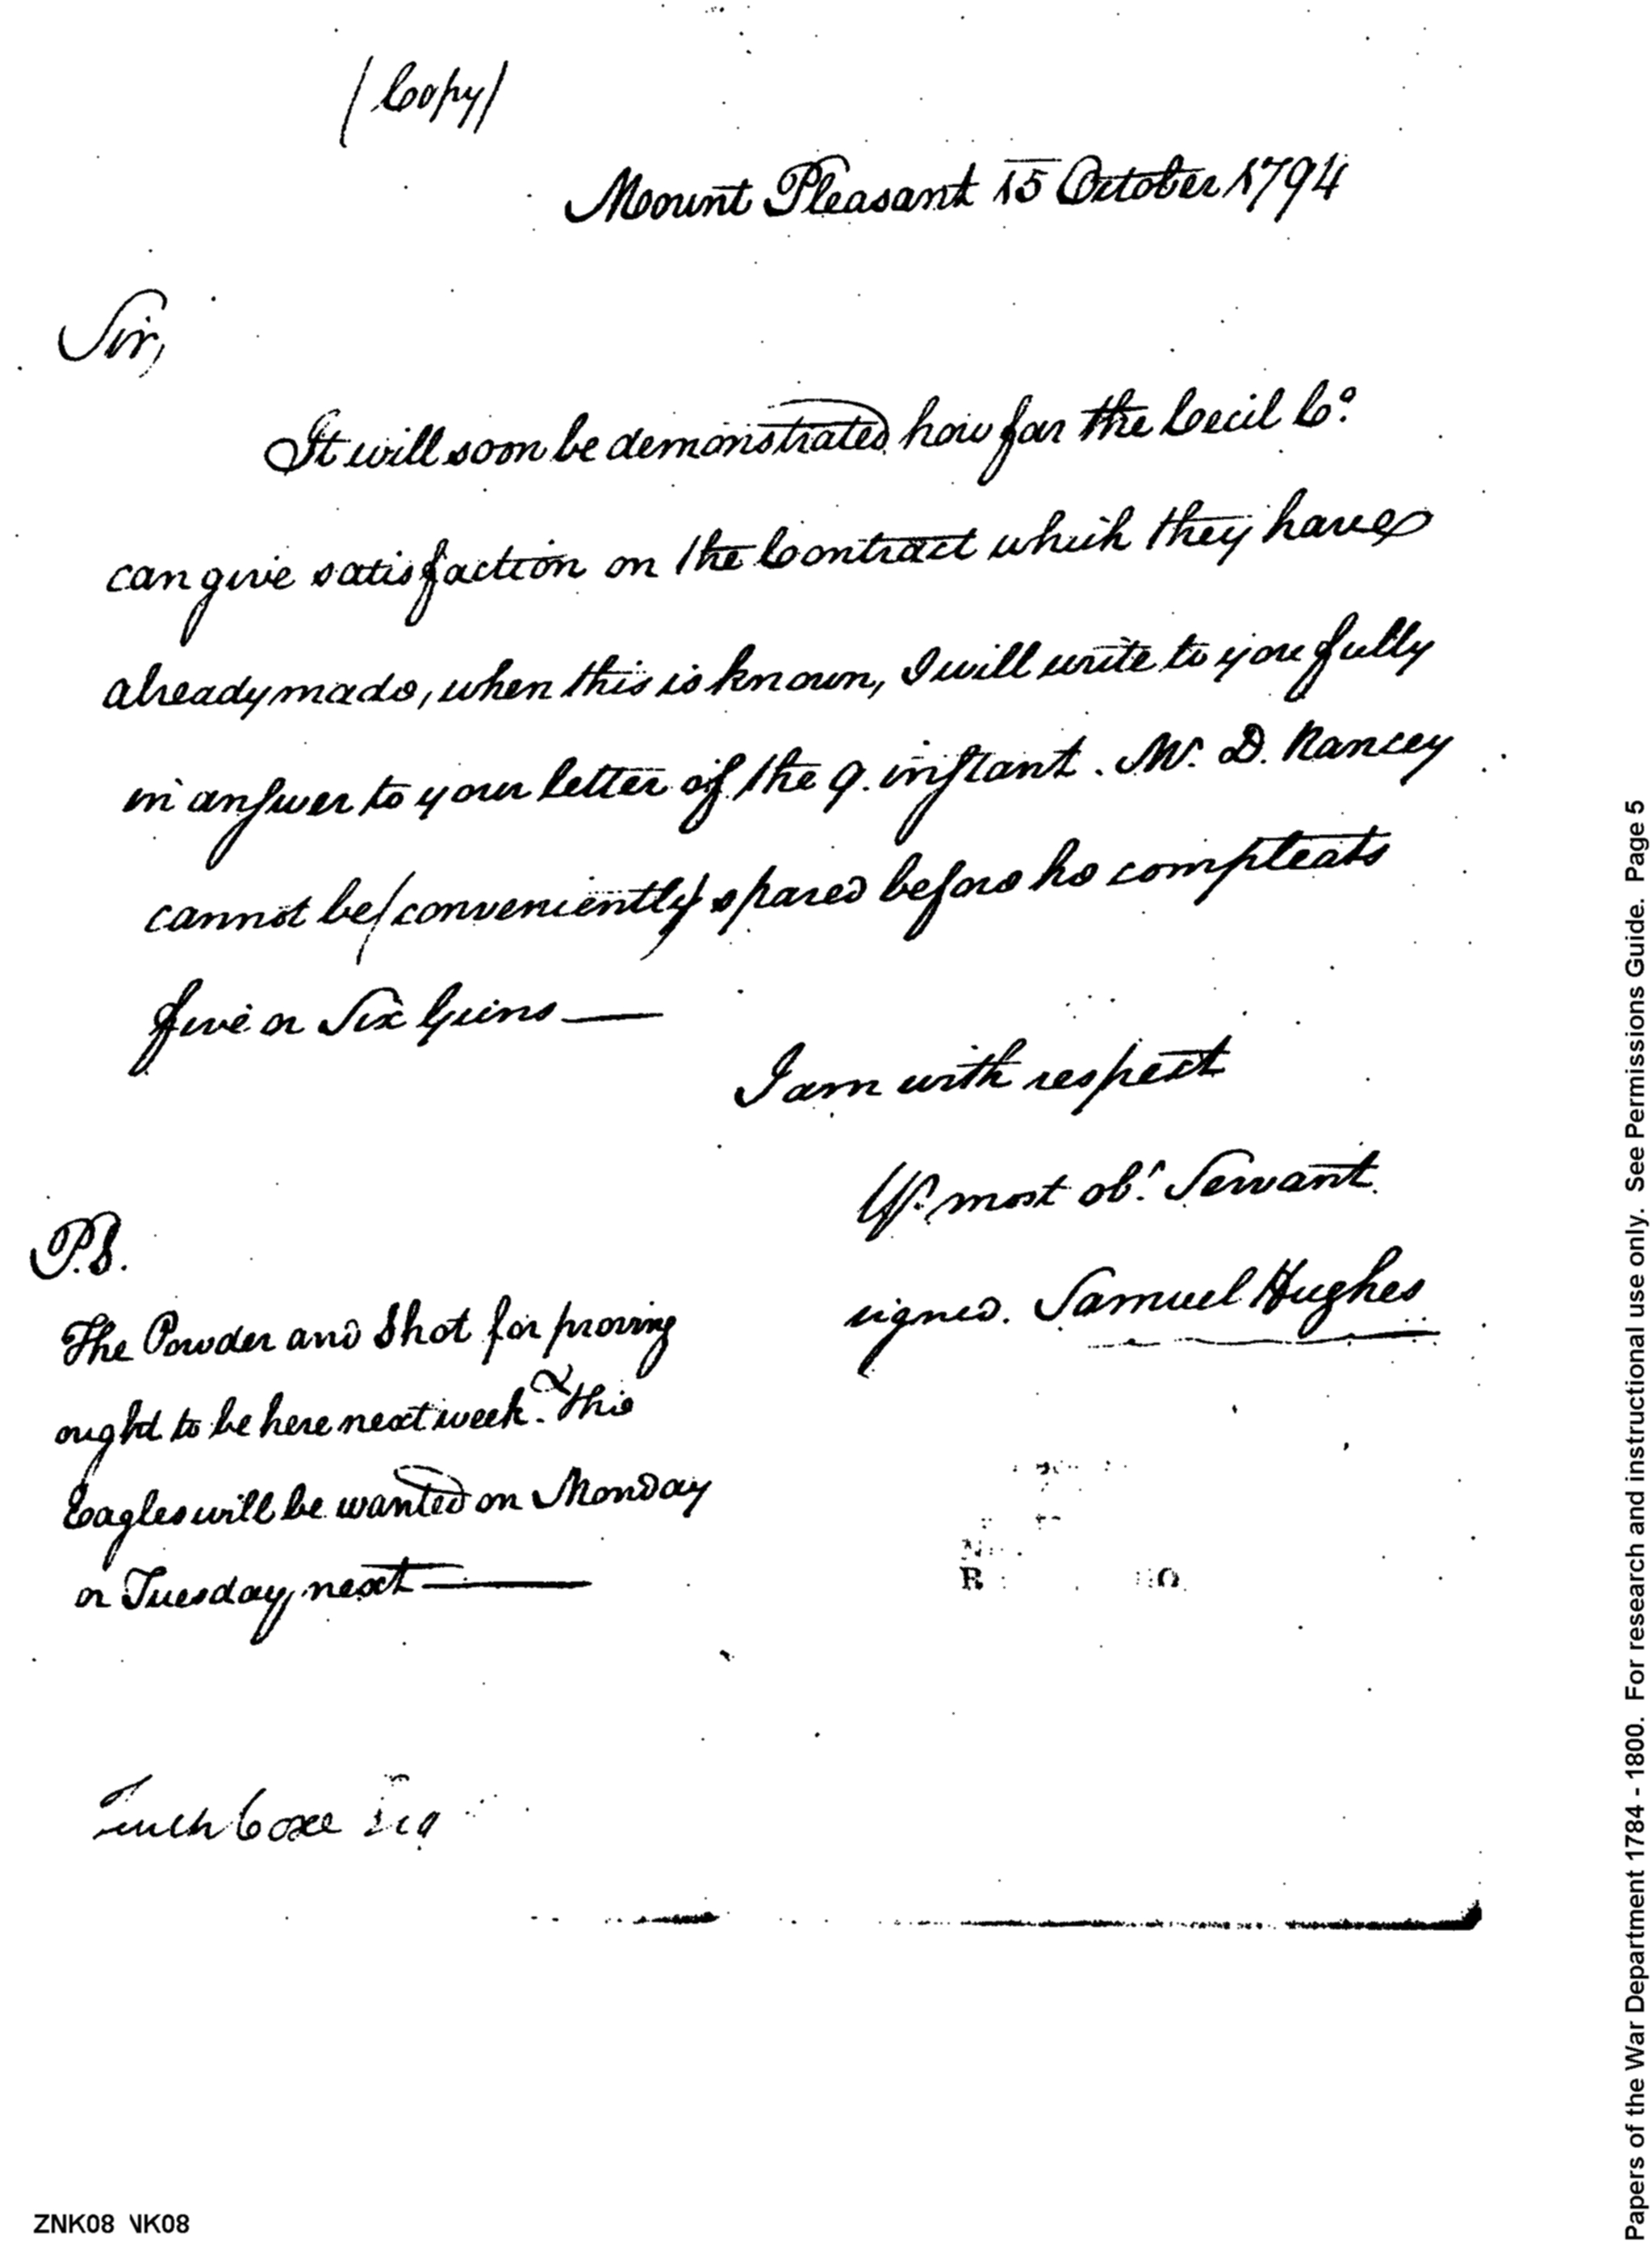 (Copy)
Mount Pleasant 15 October 1794
Sir,
It will soon be demonstrated how far the Cecil Co.
can give satisfaction on the Contract which they have
already made, when this is known, I will write to you fully
in answer to your letter of the 9. instant. Mr. D. Nancey
cannot be (conveniently) spared before he compleats
five or Six Guns —
I am with respect
Yr. most obt. Servant
signed. Samuel Hughes
P.S.
The Powder and Shot for proving
ought to be here next week. & this
Eagles will be wanted on Monday
or Tuesday next —
Tench Coxe Esq
Papers of the War Department 1784 - 1800. For research and instructional use only. See Permissions Guide. Page 5
ZNK08 NK08